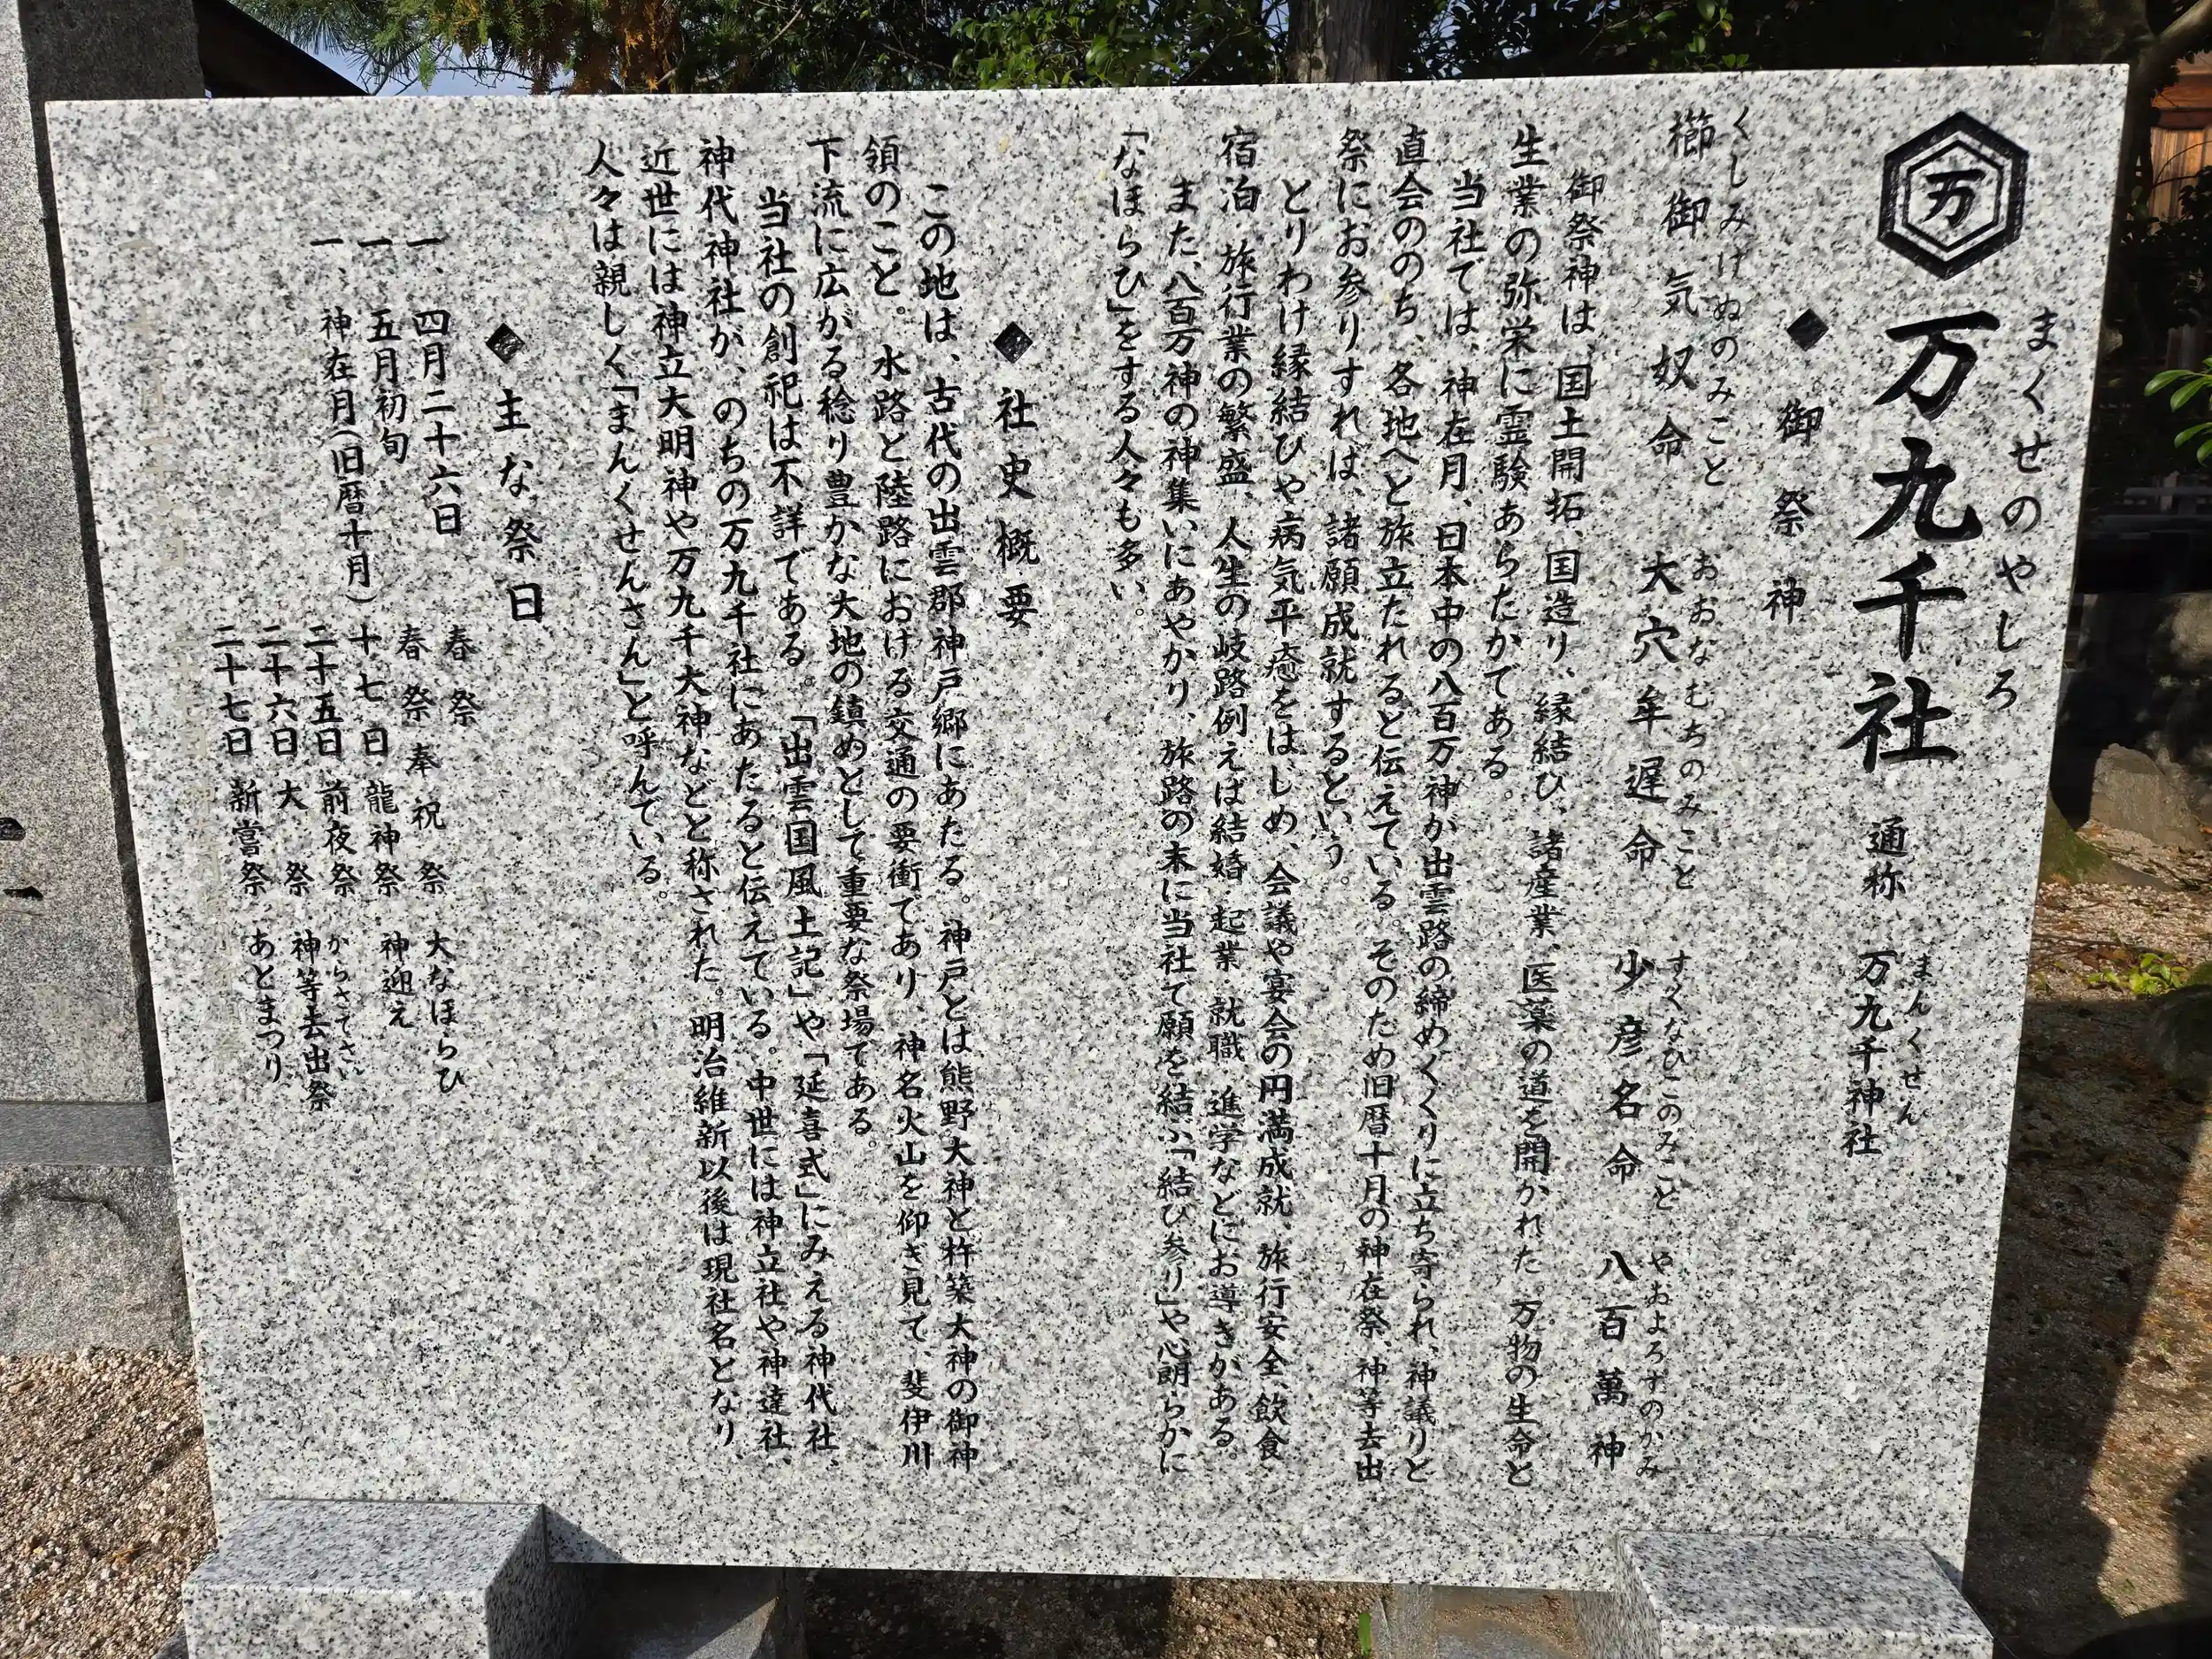 万
まくせのやしろ
万九千社　通称　万九千神社
まんくせん
◆御祭神
くしみけぬのみこと　おおなむちのみこと　すくなひこのみこと　やおよろずのかみ
櫛御気奴命　大穴牟遅命　少彦名命　八百萬神
御祭神は、国土開拓、国造り、縁結び、諸産業、医薬の道を開かれた。万物の生命と
生業の弥栄に霊験あらたかである。
当社では、神在月、日本中の八百万神が出雲路の締めくくりに立ち寄られ、神議りと
直会ののち、各地へと旅立たれると伝えている。そのため旧暦十月の神在祭、神等去出
祭にお参りすれば、諸願成就するという。
とりわけ縁結びや病気平癒をはじめ、会議や宴会の円満成就、旅行安全、飲食・
宿泊・旅行業の繁盛、人生の岐路例えば結婚・起業・就職・進学などにお導きがある。
また、八百万神の神集いにあやかり、旅路の末に当社で願を結ぶ「結び参り」や、心朗らかに
「なほらひ」をする人々も多い。
◆社史概要
この地は、古代の出雲郡神戸郷にあたる。神戸とは熊野大神と杵築大神の御神
領のこと。水路と陸路における交通の要衝であり、神名火山を仰ぎ見て、斐伊川
下流に広がる稔り豊かな大地の鎮めとして重要な祭場である。
当社の創祀は不詳である。「出雲国風土記」や「延喜式」にみえる神代社、
神代神社が、のちの万九千社にあたると伝えている。中世には神立社や神達社、
近世には神立大明神や万九千大神などと称された。明治維新以後は現社名となり、
人々は親しく「まんくせんさん」と呼んでいる。
◆主な祭日
一、四月二十六日　春祭　大なほらひ
一、五月初旬　春祭奉祝祭
一、神在月（旧暦十月）　十七日　龍神祭　神迎え
二十五日　前夜祭
からさでさい
二十六日　大祭　神等去出祭
二十七日　新嘗祭　あとまつり